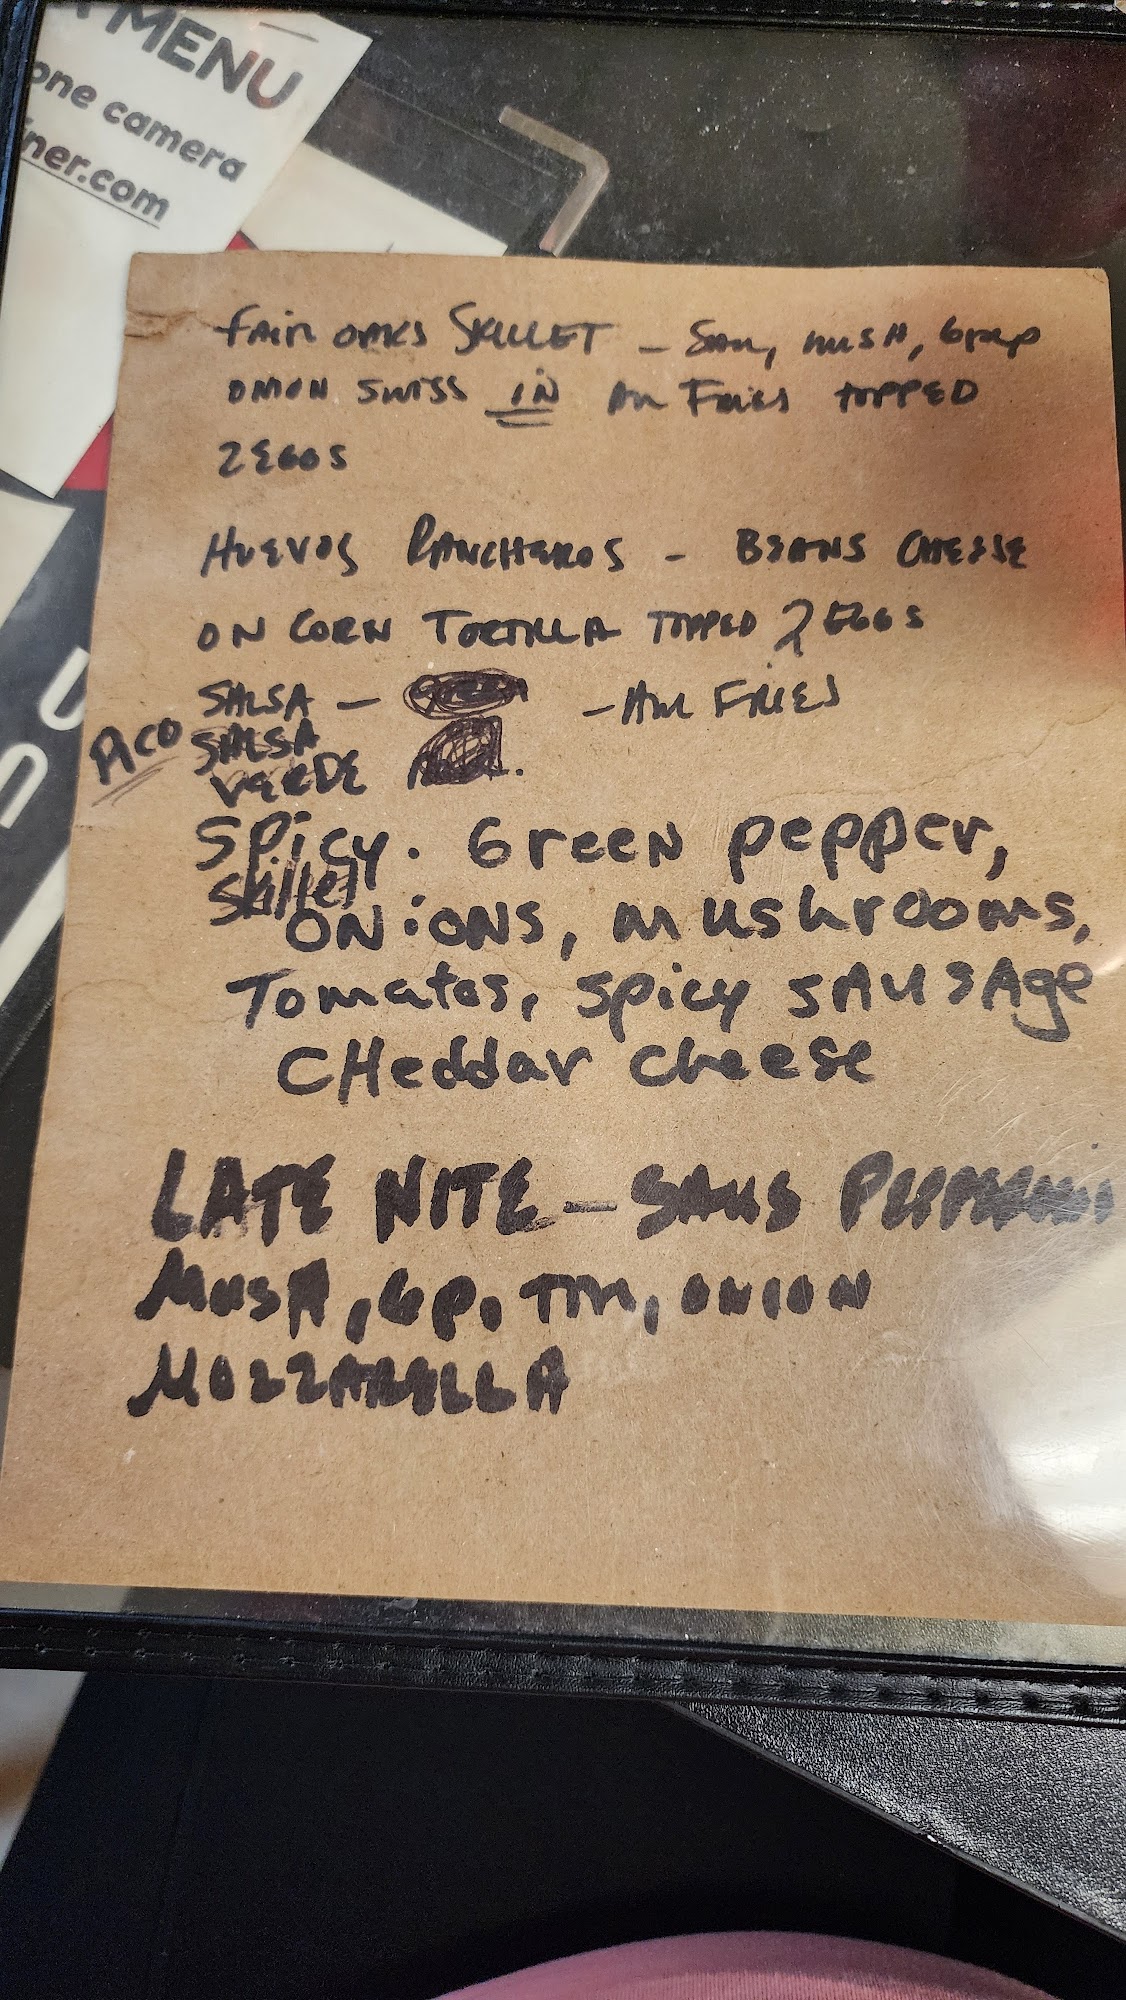 MENU
one camera
ner.com
FAIR OAKS SKILLET – SAU, MUSH, GPEP
ONION SWISS IN AM FRIES TOPPED
2 EGGS
HUEVOS RANCHEROS – BEANS CHEESE
ON CORN TORTILLA TOPPED 2 EGGS
SALSA – – AM FRIES
PICO SALSA
VERDE
Spicy. Green pepper,
Skillet
ONiONS, mushrooms,
Tomatos, spicy sAUsAge
CHeddar cheese
LATE NITE – SAUS
MUSH, GP, TOM, ONION
MOZZARELLA